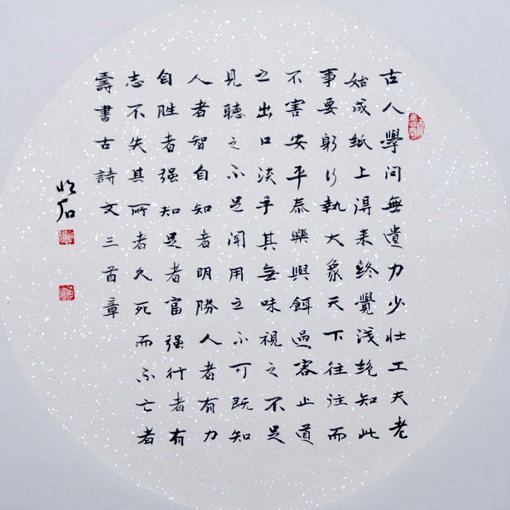 古人學问無遺力少壮工夫老
始成纸上得来终覺浅绝知此
事要躬行執大象天下往往而
不害安平泰樂與餌過客止道
之出口淡乎其無味視之不足
見聽之不足闻用之不可既知
人者智自知者明勝人者有力
自胜者强知足者富强行者有
志不失其所者久死而不亡者
壽書古詩文三首章
石